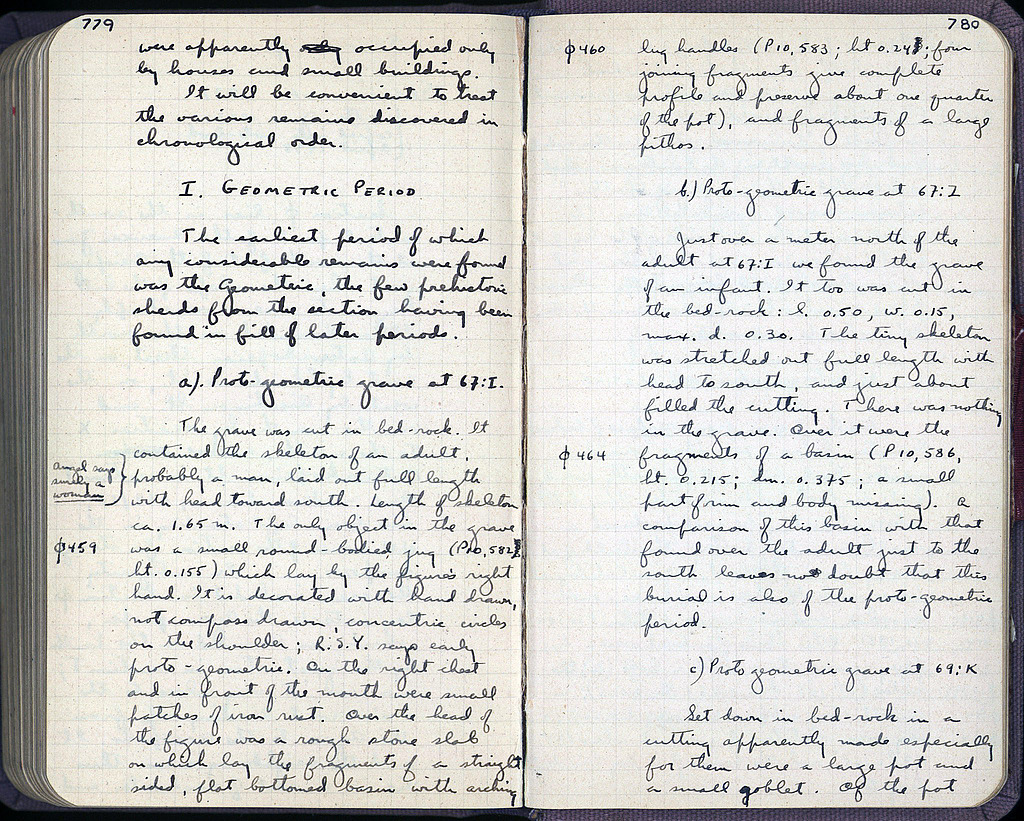 779
were apparently only occupied only
by houses and small buildings.
It will be convenient to treat
the various remains discovered in
chronological order.
I. GEOMETRIC PERIOD
The earliest period of which
any considerable remains were found
was the Geometric, the few prehistoric
sherds from the section having been
found in fill of later periods.
a). Proto-geometric grave at 67:I.
The grave was cut in bed-rock. It
contained the skeleton of an adult,
probably a man, laid out full length
with head toward south. Length of skeleton
ca. 1.65 m. The only object in the grave
was a small round-bodied jug (P10,582;
ht. 0.155) which lay by the figure's right
hand. It is decorated with hand drawn,
not compass drawn, concentric circles
on the shoulder; R.S.Y. says early
proto-geometric. On the right chest
and in front of the mouth were small
patches of iron rust. Over the head of
the figure was a rough stone slab
on which lay the fragments of a straight
sided, flat bottomed basin with arching
Angel says
surely a
woman
φ459
780
φ460
lug handles (P10,583; ht 0.243; four
joining fragments give complete
profile and preserve about one quarter
of the pot), and fragments of a large
pithos.
b.) Proto-geometric grave at 67:I
Just over a meter north of the
adult at 67:I we found the grave
of an infant. It too was cut in
the bed-rock: l. 0.50, w. 0.15,
max. d. 0.30. The tiny skeleton
was stretched out full length with
head to south, and just about
filled the cutting. There was nothing
in the grave. Over it were the
φ464
fragments of a basin (P10,586,
ht. 0.215; dm. 0.375; a small
part of rim and body missing). A
comparison of this basin with that
found over the adult just to the
south leaves no doubt that this
burial is also of the proto-geometric
period.
c) Proto geometric grave at 69:K
Set down in bed-rock in a
cutting apparently made especially
for them were a large pot and
a small goblet. Of the pot